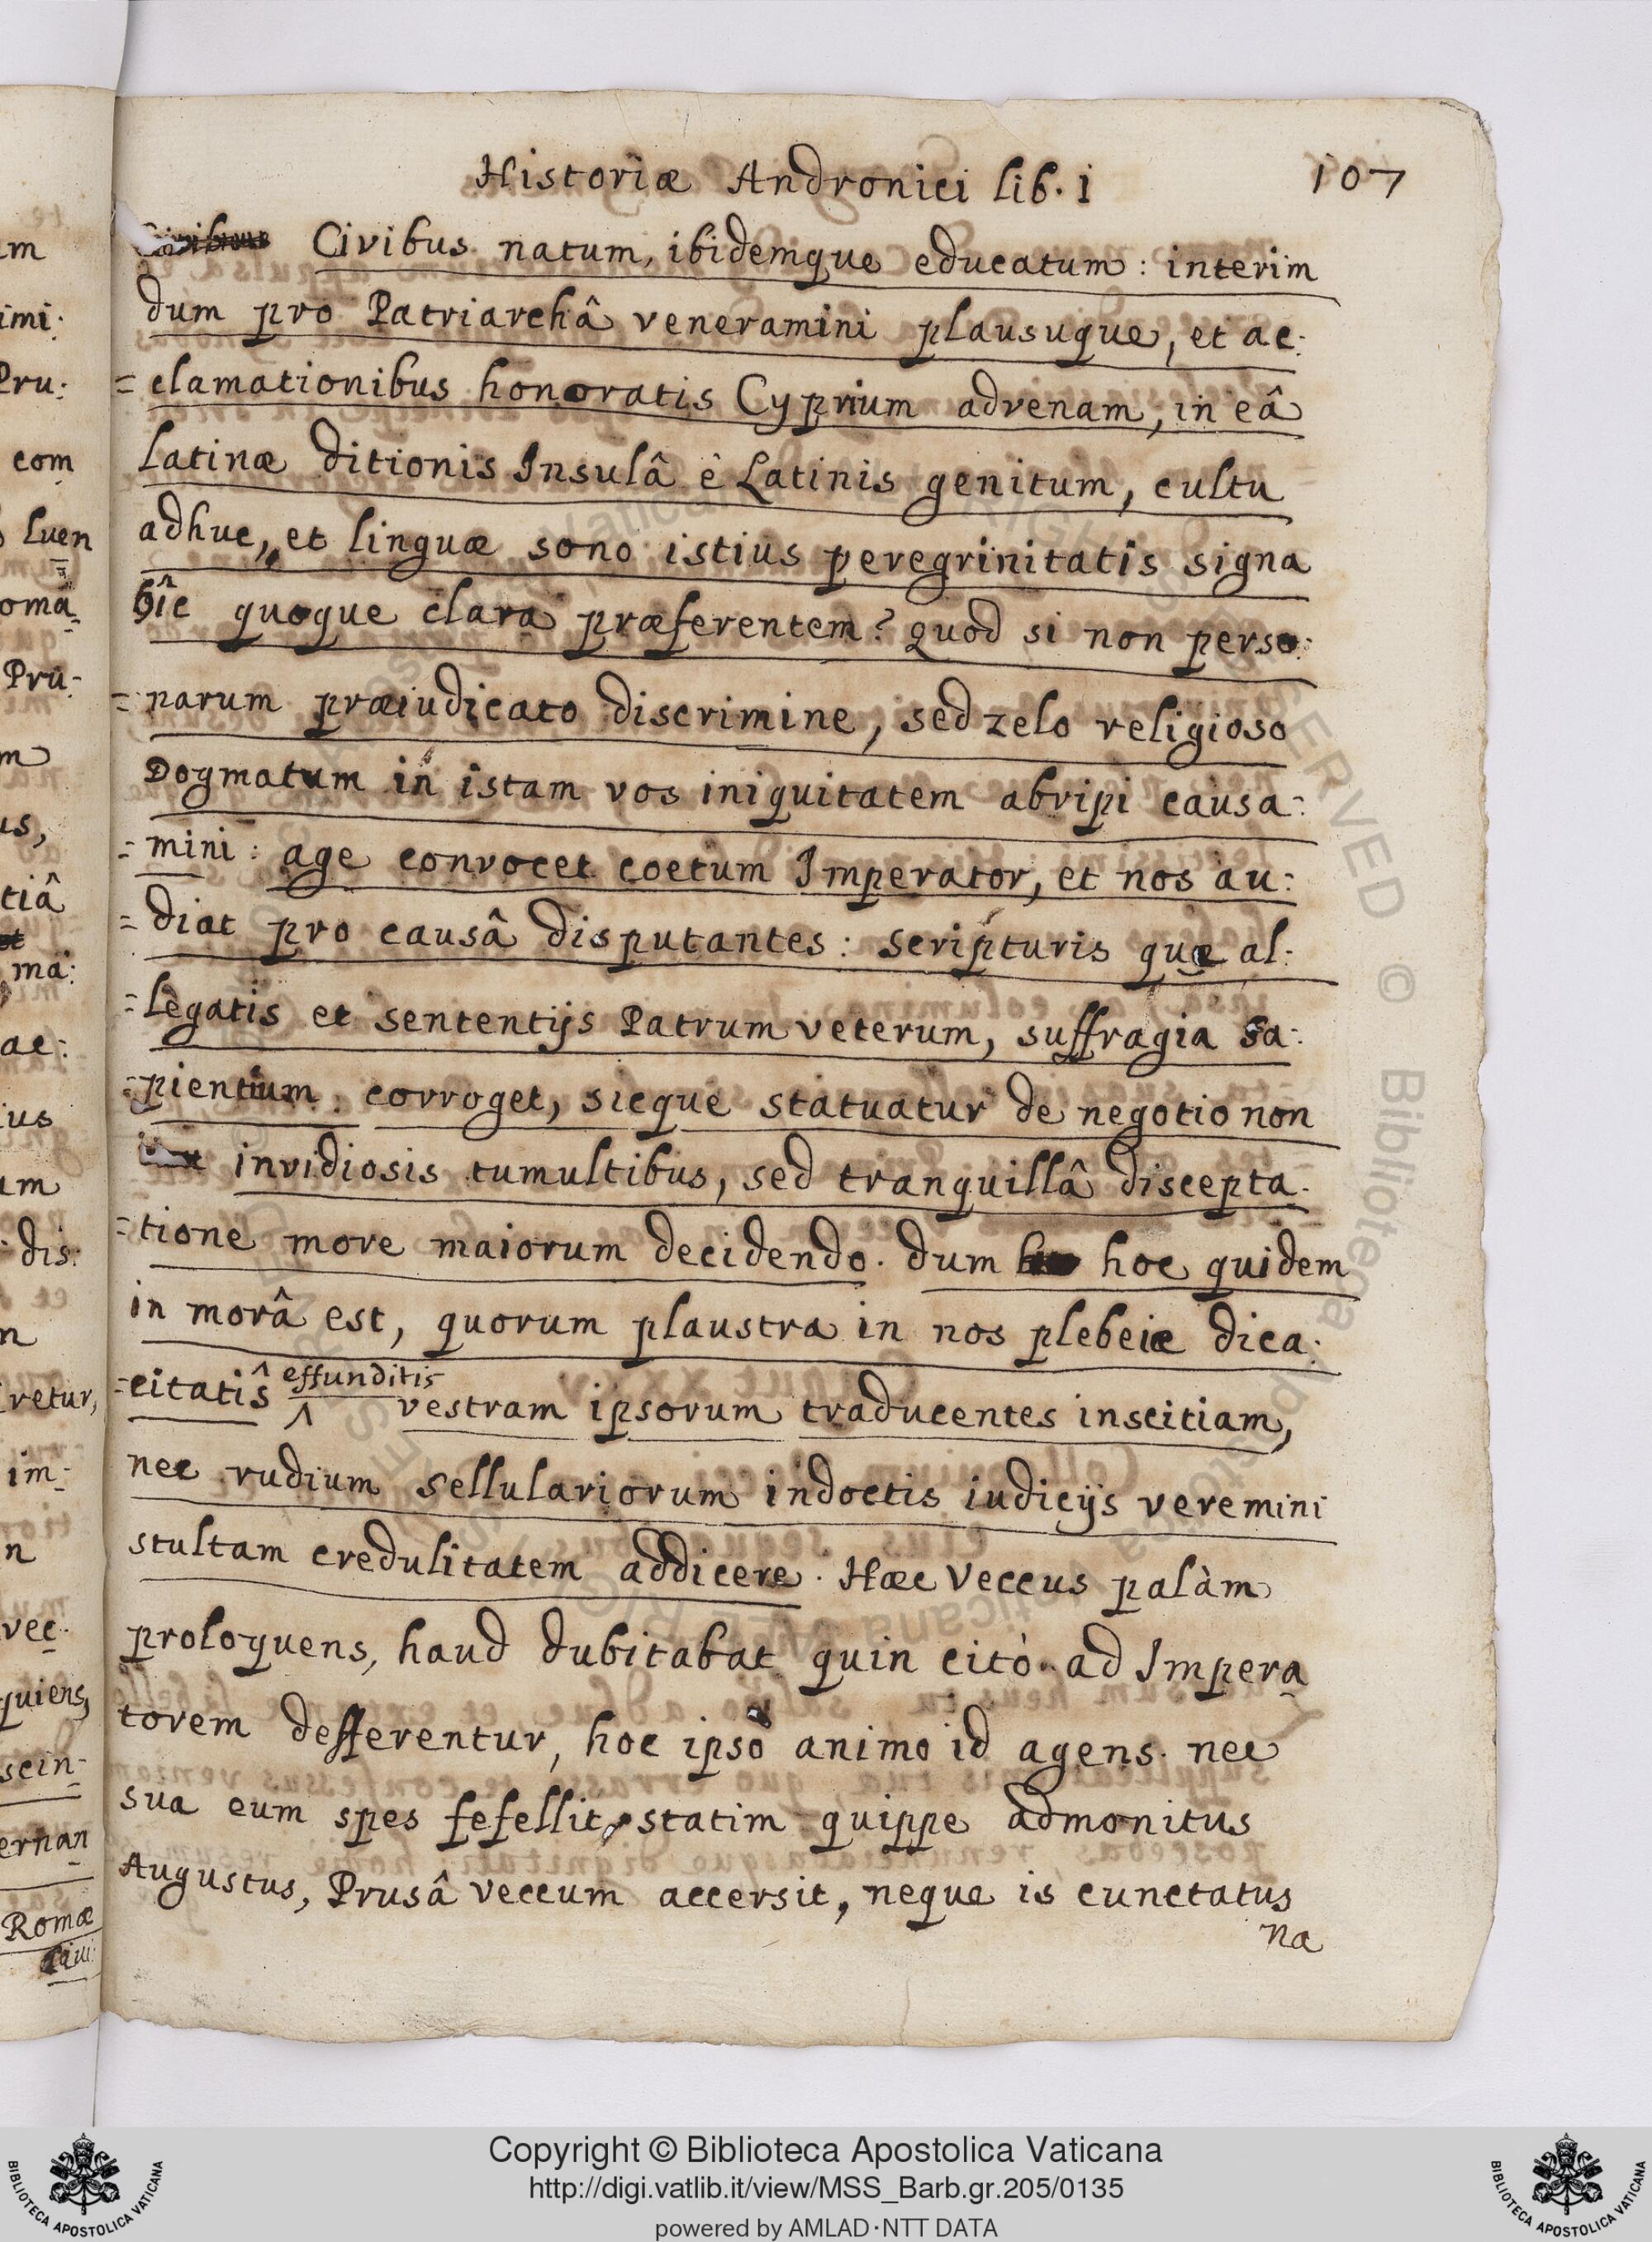 Historiæ Andronici lib. i
107
Civibus natum, ibidemque educatum: interim
dum pro Patriarchâ veneramini plausuque, et ac:
=clamationibus honoratis Cyprium advenam, in eâ
Latinæ ditionis Insulâ ê Latinis genitum, cultu
adhuc, et linguæ sono istius peregrinitatis signa
hîc quoque clara præferentem? Quod si non perso:
=narum præiudicato discrimine, sed zelo religioso
Dogmatum in istam vos iniquitatem abripi causa:
=mini: age convocet coetum Imperator, et nos au:
=diat pro causâ disputantes: scripturis que al:
=legatis et sententijs Patrum veterum, suffragia sa:
=pientium corroget, sicque statuatur de negotio non
invidiosis tumultibus, sed tranquillâ discepta:
=tione more maiorum decidendo. dum hoc quidem
in morâ est, quorum plaustra in nos plebeiæ dica:
=citatis effunditis vestram ipsorum traducentes inscitiam,
nec rudium sellulariorum indoctis iudicijs veremini
stultam credulitatem addicere. Hæc Veccus palàm
proloquens, haud dubitabat quin citò ad Impera
torem defferentur, hoc ipso animo id agens. nec
sua eum spes fefellit, statim quippe admonitus
Augustus, Prusâ Veccum accersit, neque is cunctatus
na
im
imi:
Pru:
com
luen
omã
Prũ:
m
us,
tiâ
ma:
ac:
ius
um
dis:
n
retur,
im:
n
vec.
quiens,
scin:
ernan
Romæ
Copyright © Biblioteca Apostolica Vaticana
http://digi.vatlib.it/view/MSS_Barb.gr.205/0135
powered by AMLAD·NTT DATA
BIBLIOTECA APOSTOLICA VATICANA
BIBLIOTECA APOSTOLICA VATICANA